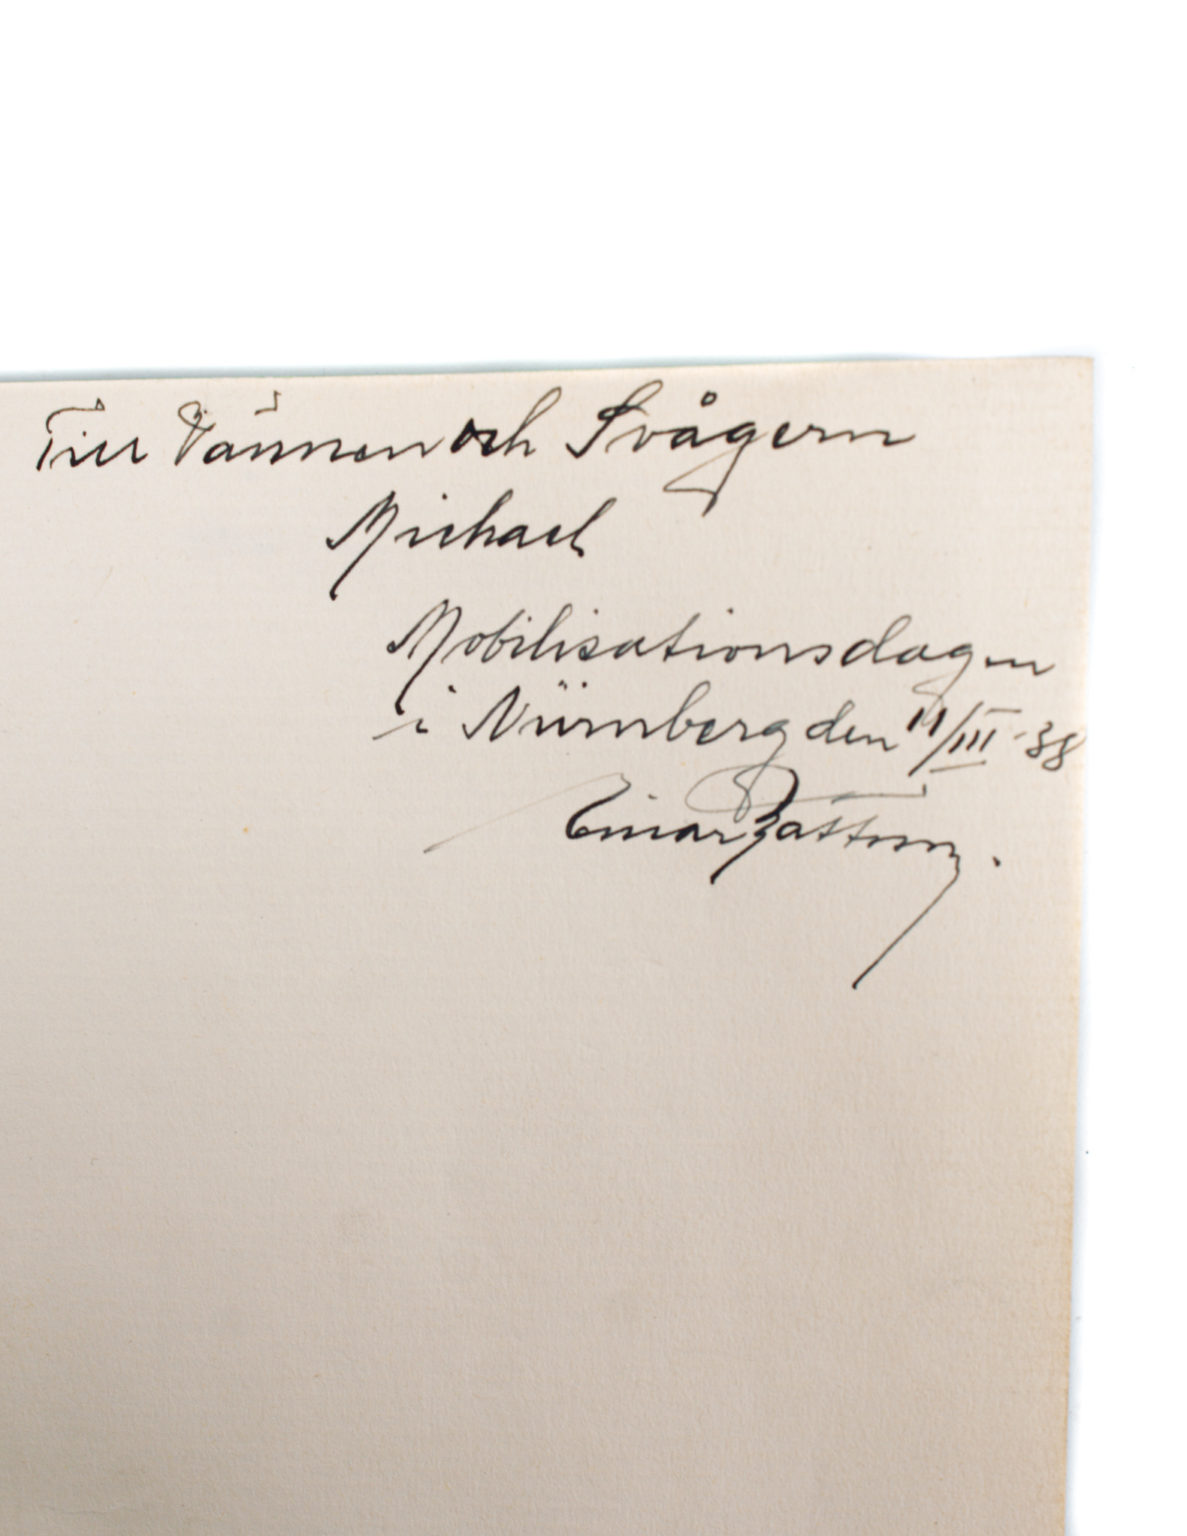 Till Vännen och Svågern
Michael
Mobilisationsdagen
i Nürnberg den 11/III -38
Einar